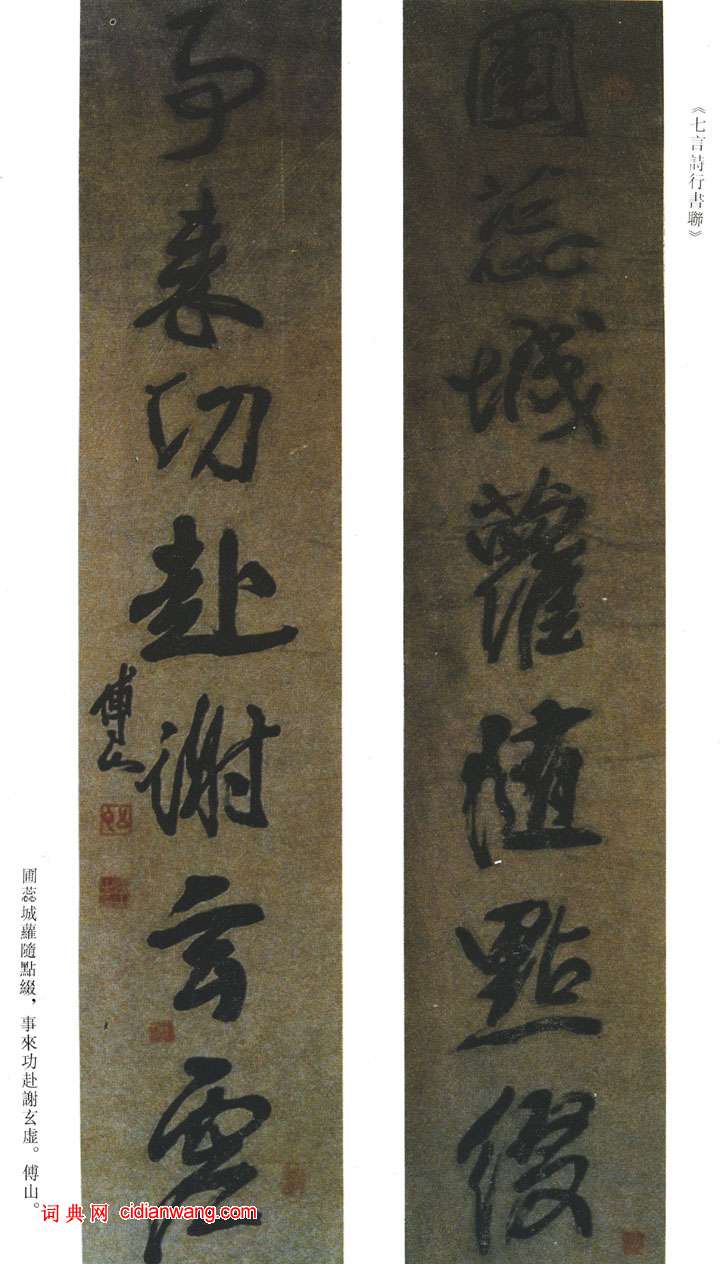 《七言詩行書聯》
圃蕊城蘿隨點綴
事來功赴謝玄虛
傅山
圃蕊城蘿隨點綴，事來功赴謝玄虛。傅山。
词典网 cidianwang.com